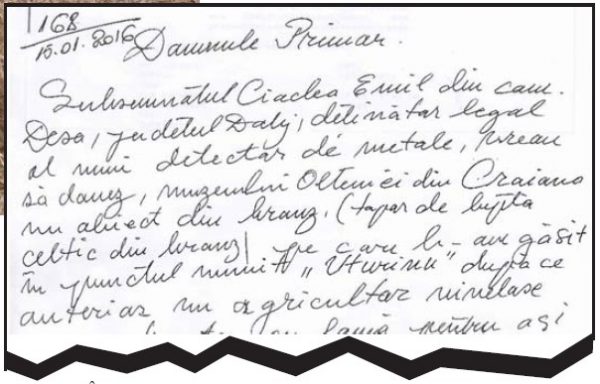 168
15.01.2016
Domnule Primar.
Subsemnatul Ciaclea Emil din com.
Desa, județul Dolj, deținător legal
al unui detector de metale, vreau
să donez, muzeului Olteniei din Craiova
un obiect din bronz. (topor de luptă
celtic din bronz) pe care l-am găsit
în punctul numit după ce
anterior un agricultor nivelase
lamă pentru ași